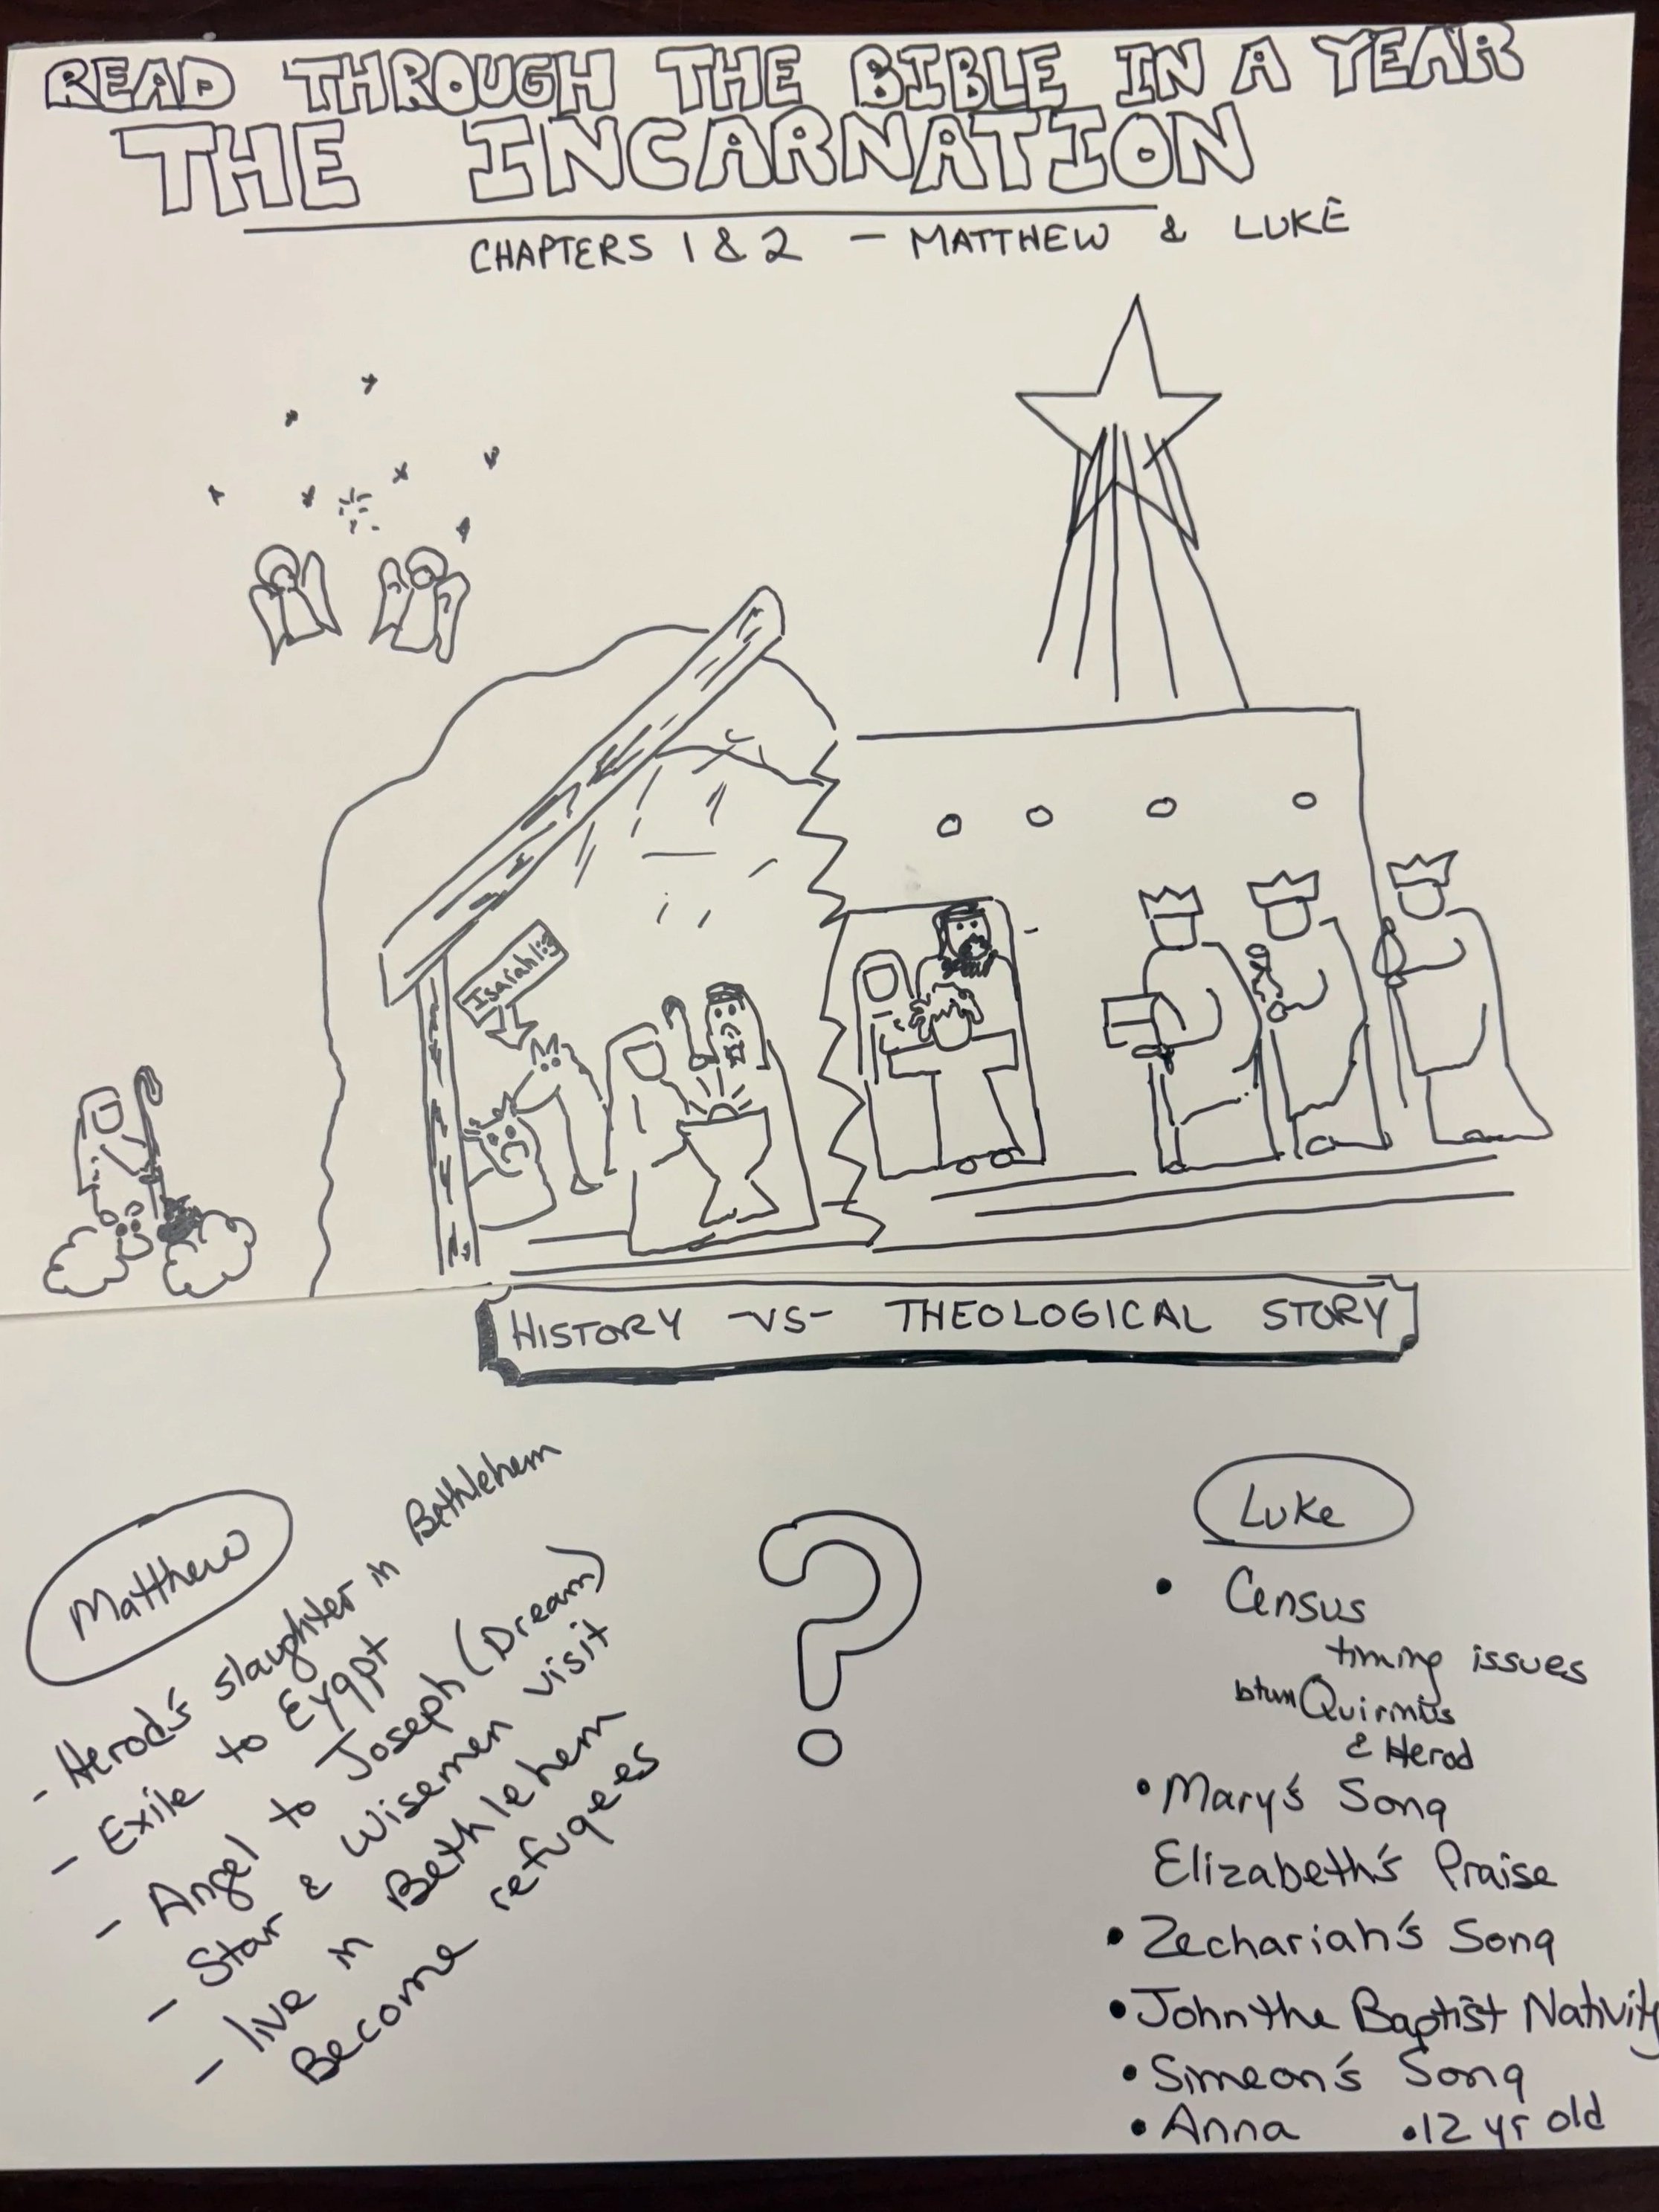 READ THROUGH THE BIBLE IN A YEAR
THE INCARNATION
CHAPTERS 1 & 2 — MATTHEW & LUKE
Isaiah 1:3
HISTORY -VS- THEOLOGICAL STORY
Matthew
- Herod's slaughter in Bethlehem
- Exile to Eygpt
- Angel to Joseph (Dream)
- Star & Wisemen visit
- live in Bethlehem
Become refugees
?
Luke
• Census
timing issues
btwn Quirinius
& Herod
• Mary's Song
Elizabeth's Praise
• Zechariah's Song
• John the Baptist Nativity
• Simeon's Song
• Anna • 12 yr old